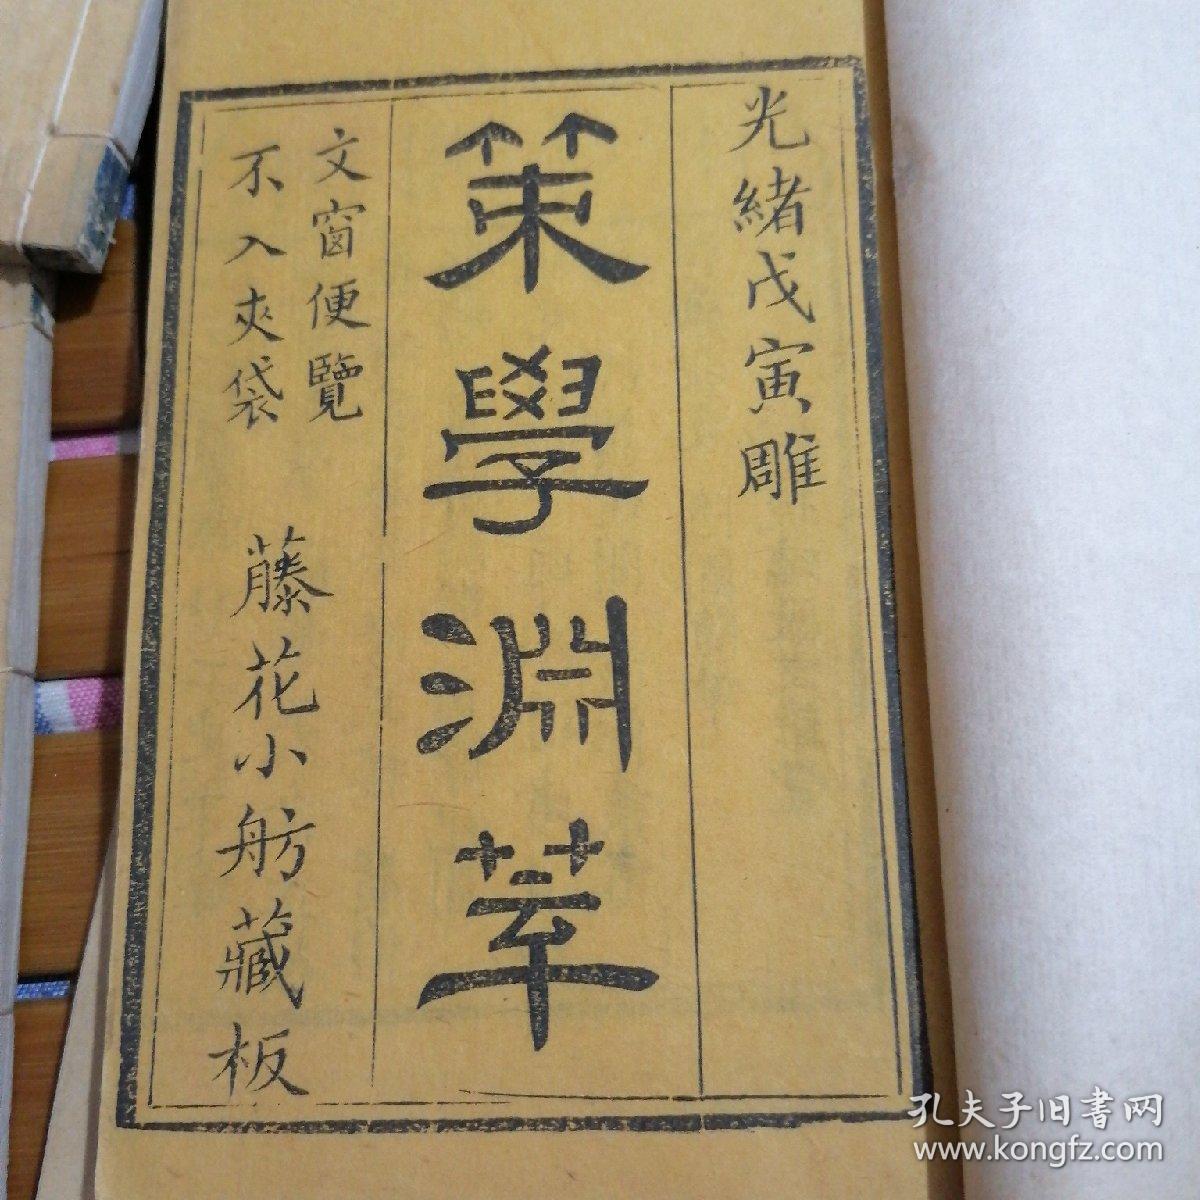 光緒戊寅雕
策學淵萃
文窗便覽
不入夾袋
藤花小舫藏板
孔夫子旧書网
www.kongfz.com